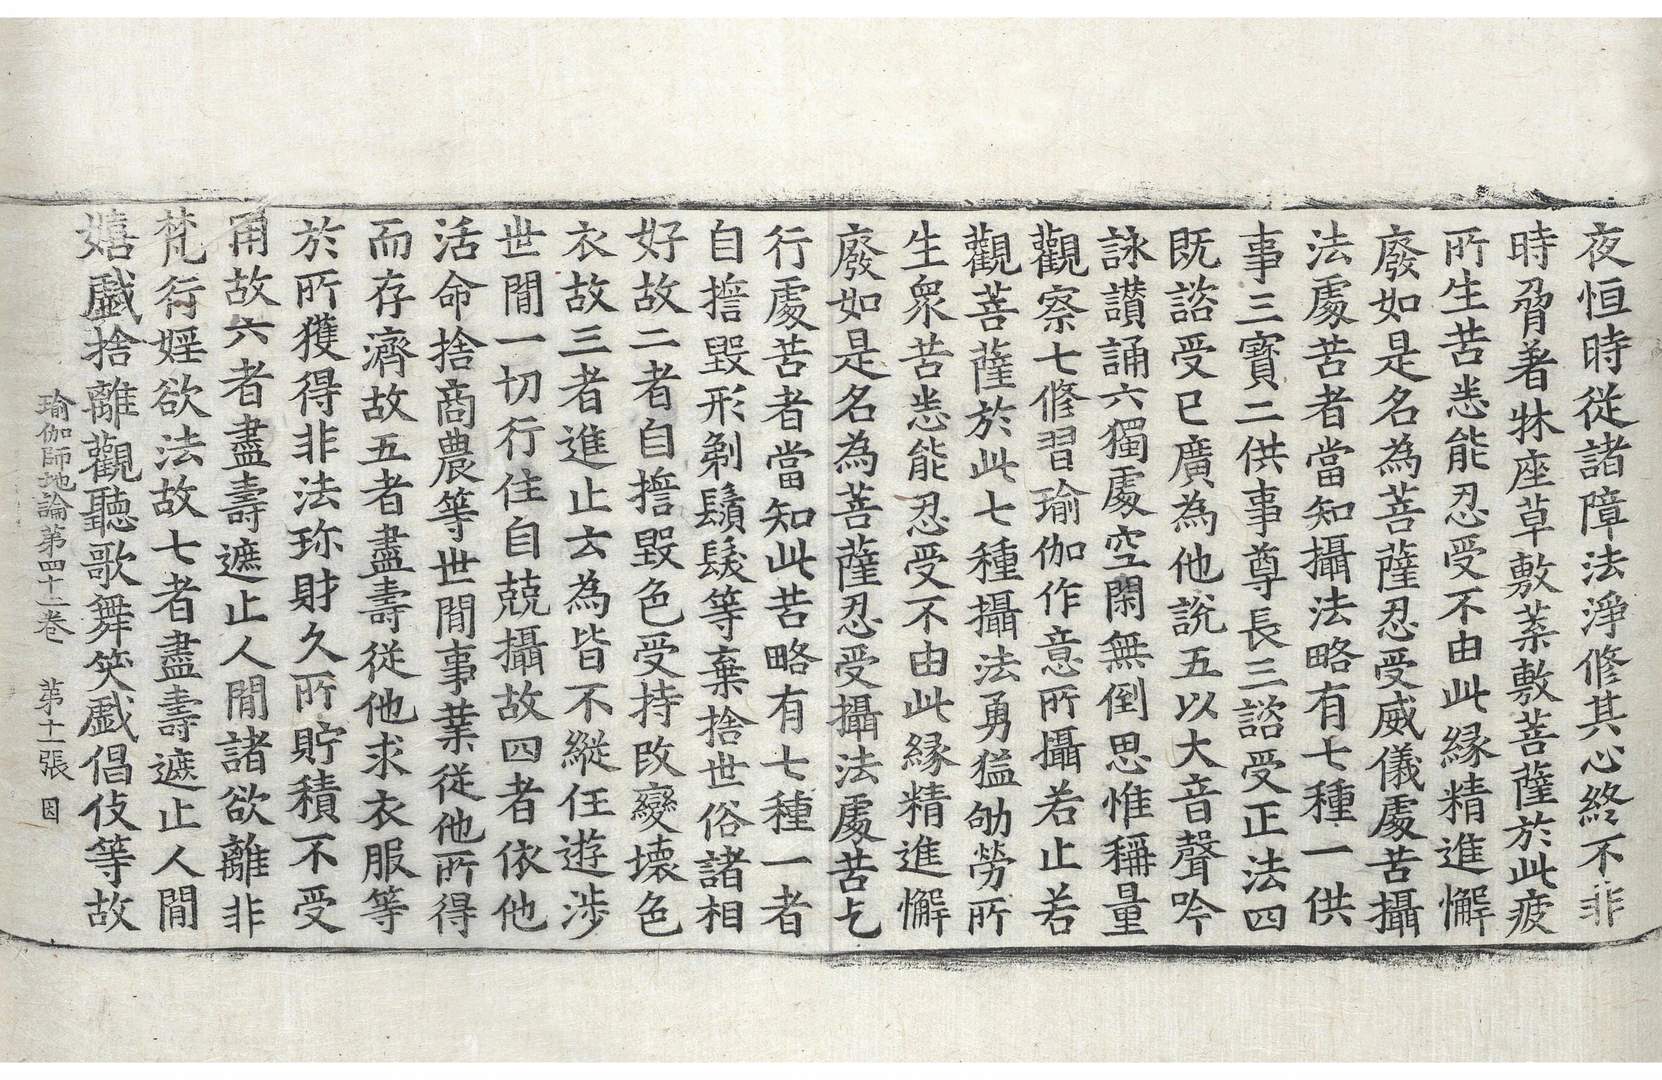 夜恒時從諸障法淨修其心終不非
時脅著牀座草敷葉敷菩薩於此疲
所生苦悉能忍受不由此縁精進懈
廢如是名為菩薩忍受威儀處苦攝
法處苦者當知攝法略有七種一供
事三寳二供事尊長三諮受正法四
既諮受已廣為他說五以大音聲吟
詠讃誦六獨處空閑無倒思惟稱量
觀察七修習瑜伽作意所攝若止若
觀菩薩於此七種攝法勇猛劬勞所
生衆苦悉能忍受不由此縁精進懈
廢如是名為菩薩忍受攝法處苦乞
行處苦者當知此苦略有七種一者
自誓毀形剃鬚髮等棄捨世俗諸相
好故二者自誓毀色受持改變壞色
衣故三者進止去為皆不縱任遊涉
世閒一切行住自兢攝故四者依他
活命捨商農等世閒事業從他所得
而存濟故五者盡壽從他求衣服等
於所獲得非法珎財久所貯積不受
用故六者盡壽遮止人閒諸欲離非
梵行婬欲法故七者盡壽遮止人閒
嬉戲捨離觀聽歌舞笑戲倡伎等故
瑜伽師地論第四十二卷 第十一張 因